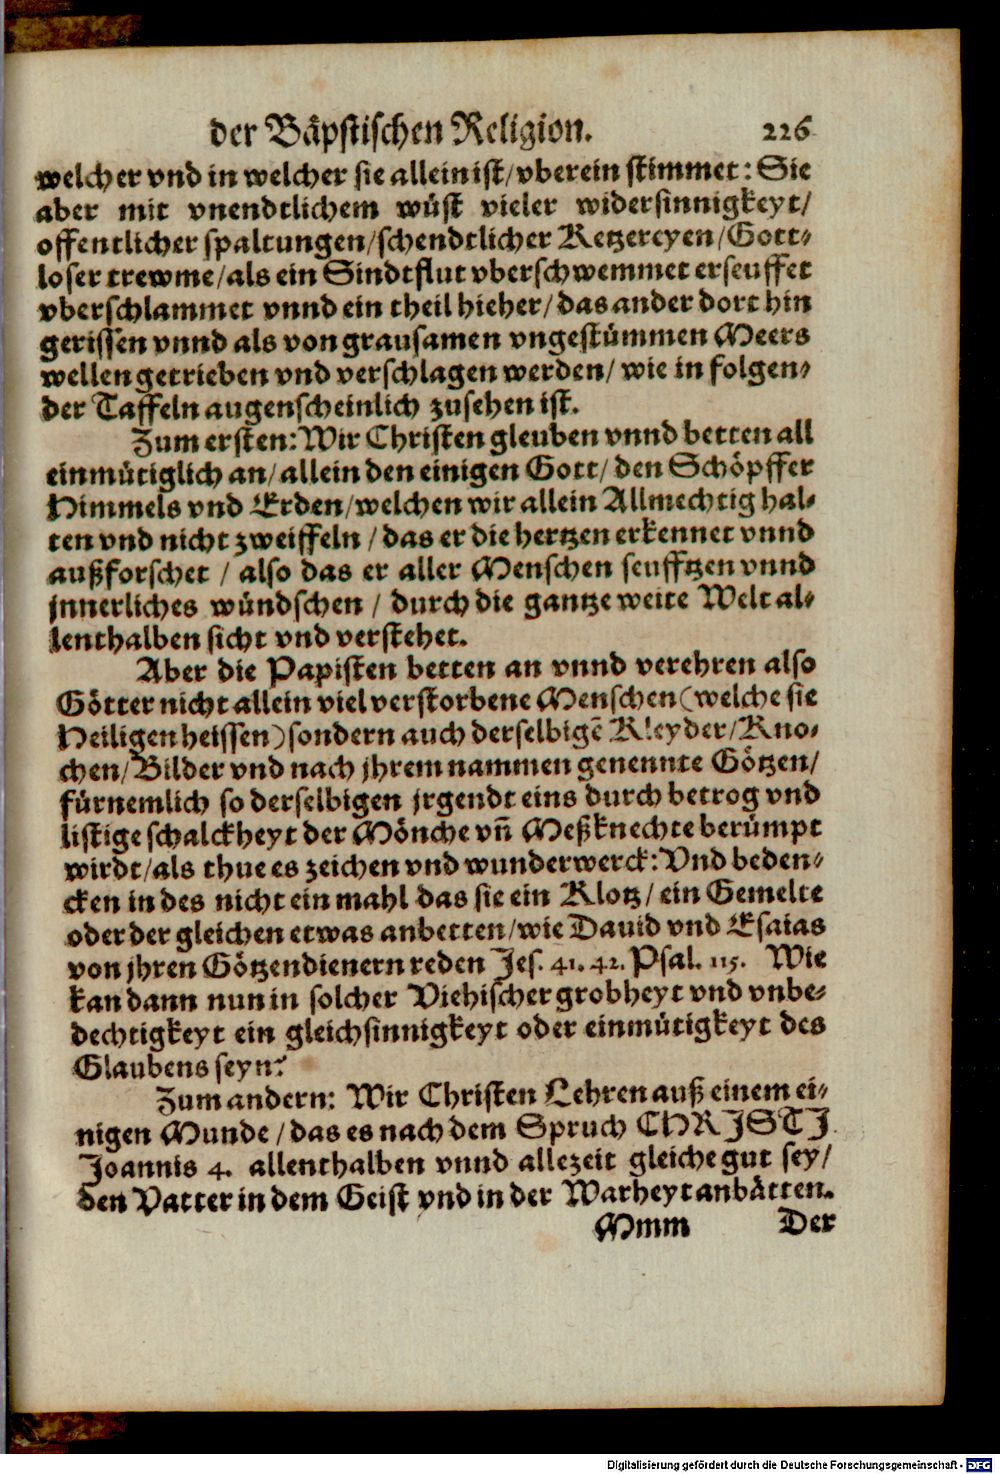 der Bäpstischen Religion. 226
welcher vnd in welcher sie allein ist/vberein stimmet: Sie
aber mit vnendtlichem wüst vieler widersinnigkeyt/
offentlicher spaltungen/schendtlicher Ketzereyen/Gott-
loser trewme/als ein Sindtflut vberschwemmet erseuffet
vberschlammet vnnd ein theil hieher/das ander dort hin
gerissen vnnd als von grausamen vngestümmen Meers
wellen getrieben vnd verschlagen werden/ wie in folgen-
der Taffeln augenscheinlich zusehen ist.
Zum ersten: Wir Christen gleuben vnnd betten all
einmütiglich an/allein den einigen Gott/ den Schöpffer
Himmels vnd Erden/welchen wir allein Allmechtig hal-
ten vnd nicht zweiffeln / das er die hertzen erkennet vnnd
außforschet / also das er aller Menschen seufftzen vnnd
jnnerliches wündschen / durch die gantze weite Welt al-
lenthalben sicht vnd verstehet.
Aber die Papisten betten an vnnd verehren also
Götter nicht allein viel verstorbene Menschen (welche sie
Heiligen heissen) sondern auch derselbigē Kleyder/Kno-
chen/Bilder vnd nach jhrem nammen genennte Götzen/
fürnemlich so derselbigen jrgendt eins durch betrog vnd
listige schalckheyt der Mönche vn̄ Meßknechte berümpt
wirdt/als thue es zeichen vnd wunderwerck: Vnd beden-
cken in des nicht ein mahl das sie ein Klotz/ ein Gemelte
oder der gleichen etwas anbetten/wie Dauid vnd Esaias
von jhren Götzendienern reden Jes. 41. 42. Psal. 115. Wie
kan dann nun in solcher Viehischer grobheyt vnd vnbe-
dechtigkeyt ein gleichsinnigkeyt oder einmütigkeyt des
Glaubens seyn?
Zum andern: Wir Christen Lehren auß einem ei-
nigen Munde / das es nach dem Spruch CHRISTI
Joannis 4. allenthalben vnnd allezeit gleiche gut sey/
den Vatter in dem Geist vnd in der Warheyt anbätten.
Mmm Der
Digitalisierung gefördert durch die Deutsche Forschungsgemeinschaft - DFG